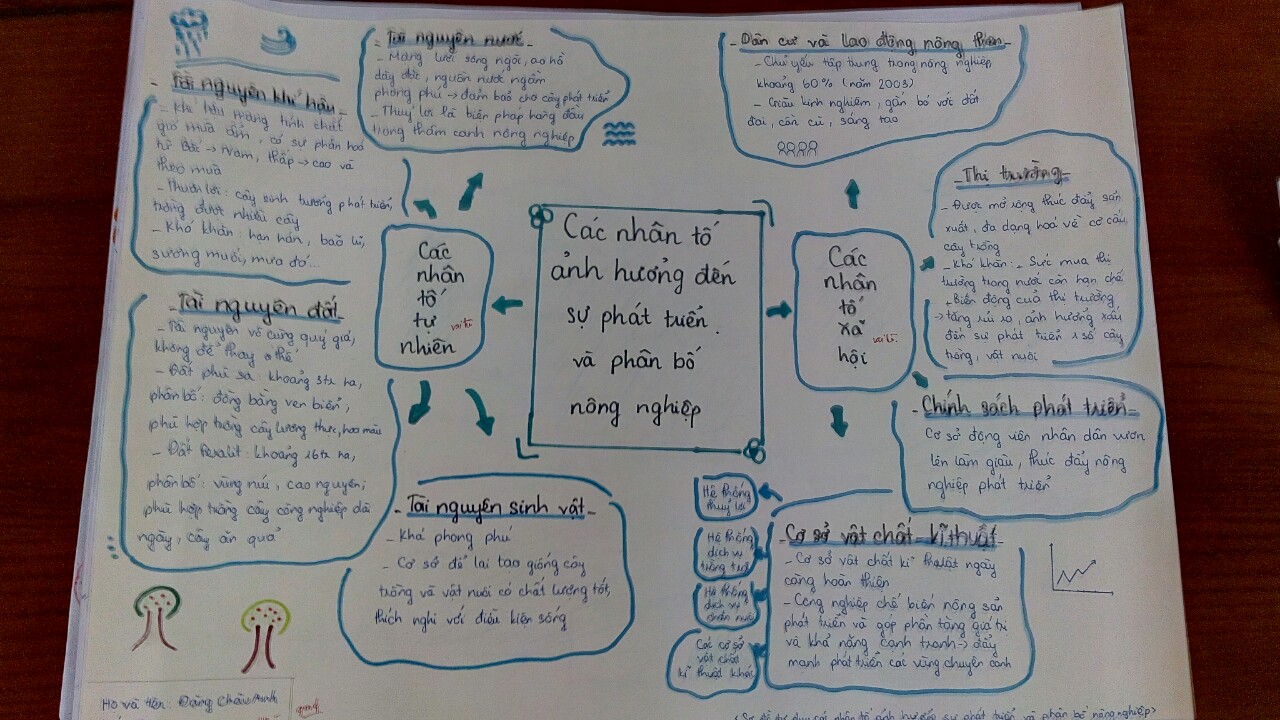 - Tài nguyên nước -
- Mạng lưới sông ngòi, ao hồ
dày đặc, nguồn nước ngầm
phong phú → đảm bảo cho cây phát triển
- Thuỷ lợi là biện pháp hàng đầu
trong thâm canh nông nghiệp
- Tài nguyên khí hậu -
- Khí hậu mang tính chất
gió mùa ẩm, có sự phân hoá
từ Bắc → Nam, thấp → cao và
theo mùa
- Thuận lợi: cây sinh trưởng phát triển,
trồng được nhiều cây
- Khó khăn: hạn hán, bão lũ,
sương muối, mưa đá...
- Tài nguyên đất -
- Tài nguyên vô cùng quý giá,
không để thay thế
- Đất phù sa: khoảng 3tr ha,
phân bố: đồng bằng ven biển,
phù hợp trồng cây lương thực, hoa màu
- Đất feralit: khoảng 16tr ha,
phân bố: vùng núi, cao nguyên;
phù hợp trồng cây công nghiệp dài
ngày, cây ăn quả
Các
nhân
tố
tự
nhiên
- Tài nguyên sinh vật -
- Khá phong phú
- Cơ sở để lai tạo giống cây
trồng và vật nuôi có chất lượng tốt,
thích nghi với điều kiện sống
Các nhân tố
ảnh hưởng đến
sự phát triển.
và phân bố
nông nghiệp
Các
nhân
tố
xã
hội
- Dân cư và lao động nông thôn -
- Chủ yếu tập trung trong nông nghiệp,
khoảng 60% (năm 2003)
- Giàu kinh nghiệm, gắn bó với đất
đai, cần cù, sáng tạo
- Thị trường -
- Được mở rộng thúc đẩy sản
xuất, đa dạng hoá về cơ cấu
cây trồng
- Khó khăn: - Sức mua thị
trường trong nước còn hạn chế
+ Biến động của thị trường,
→ tăng rủi ro, ảnh hưởng xấu
đến sự phát triển 1 số cây
trồng, vật nuôi
- Chính sách phát triển -
Cơ sở động viên nhân dân vươn
lên làm giàu, thúc đẩy nông
nghiệp phát triển
- Cơ sở vật chất - kĩ thuật -
- Cơ sở vật chất kĩ thuật ngày
càng hoàn thiện
- Công nghiệp chế biến nông sản
phát triển và góp phần tăng giá trị
và khả năng cạnh tranh → đẩy
mạnh phát triển các vùng chuyên canh
Hệ thống
thuỷ lợi
Hệ thống
dịch vụ
trồng trọt
Hệ thống
dịch vụ
chăn nuôi
Các cơ sở
vật chất
kĩ thuật khác
Họ và tên: Đặng Châu
<Sơ đồ tư duy các nhân tố ảnh hưởng sự phát triển và phân bố nông nghiệp>